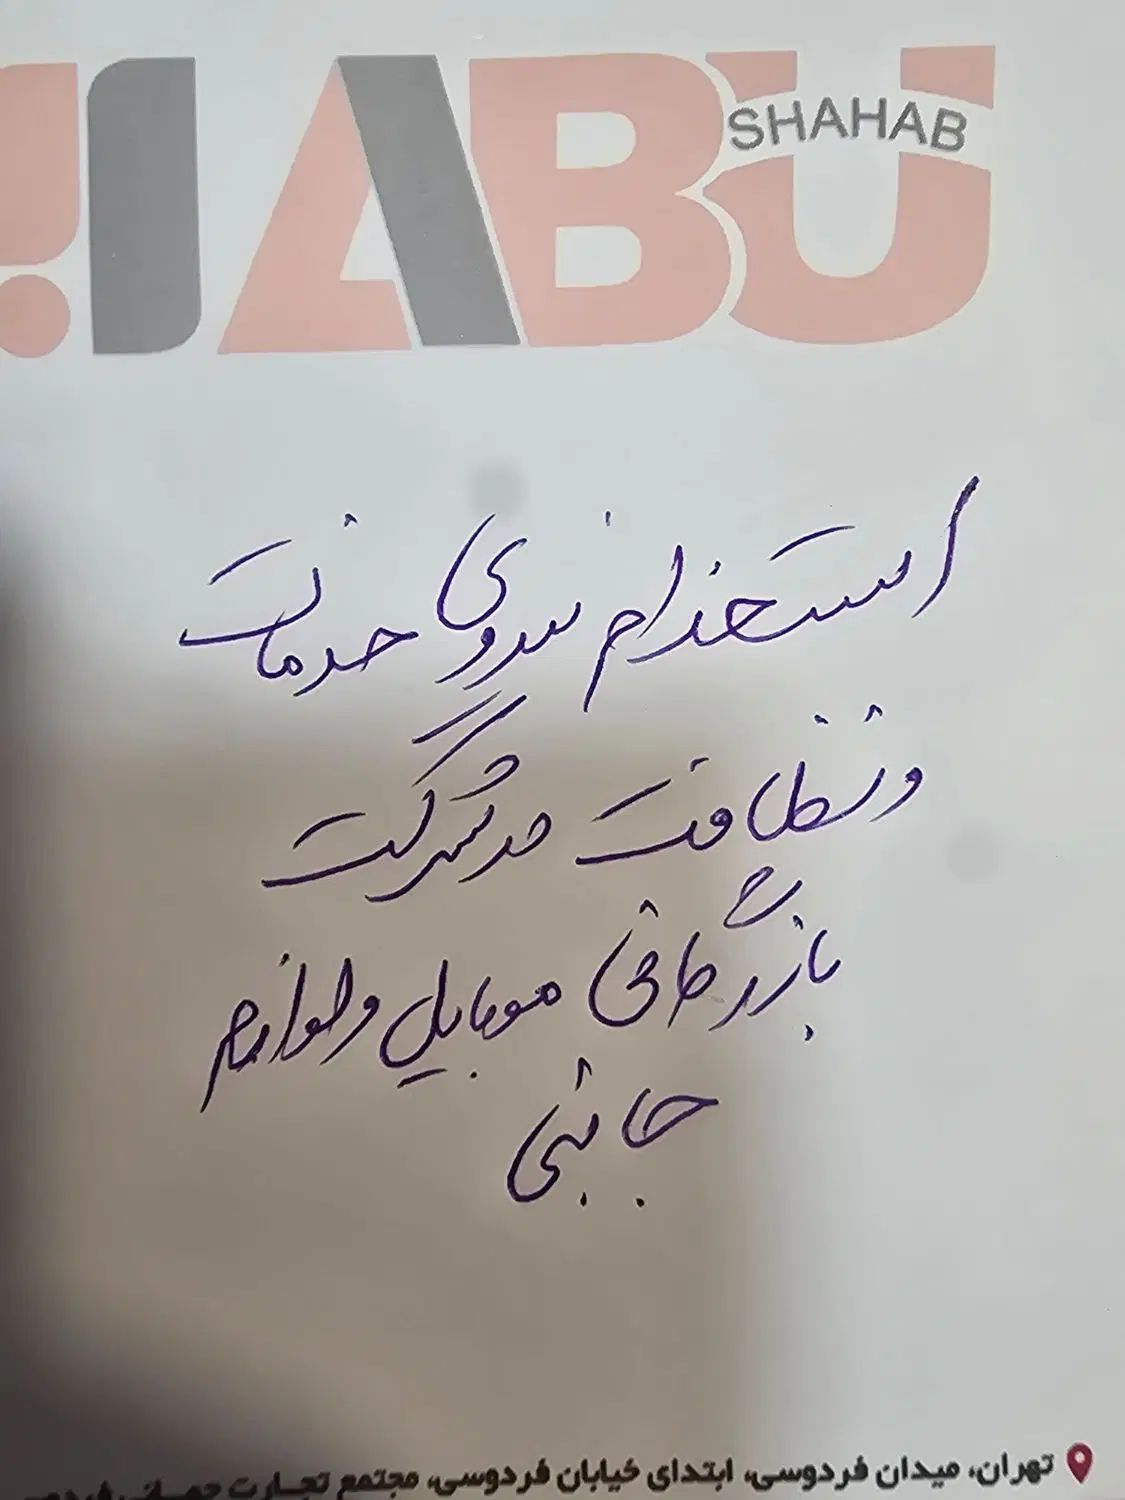 ABU
SHAHAB
استخدام نیروی خدمات
و نظافت در شرکت
بازرگانی موبایل و لوازم
جانبی
تهران، میدان فردوسی، ابتدای خیابان فردوسی، مجتمع تجارت جهانی فردوسی